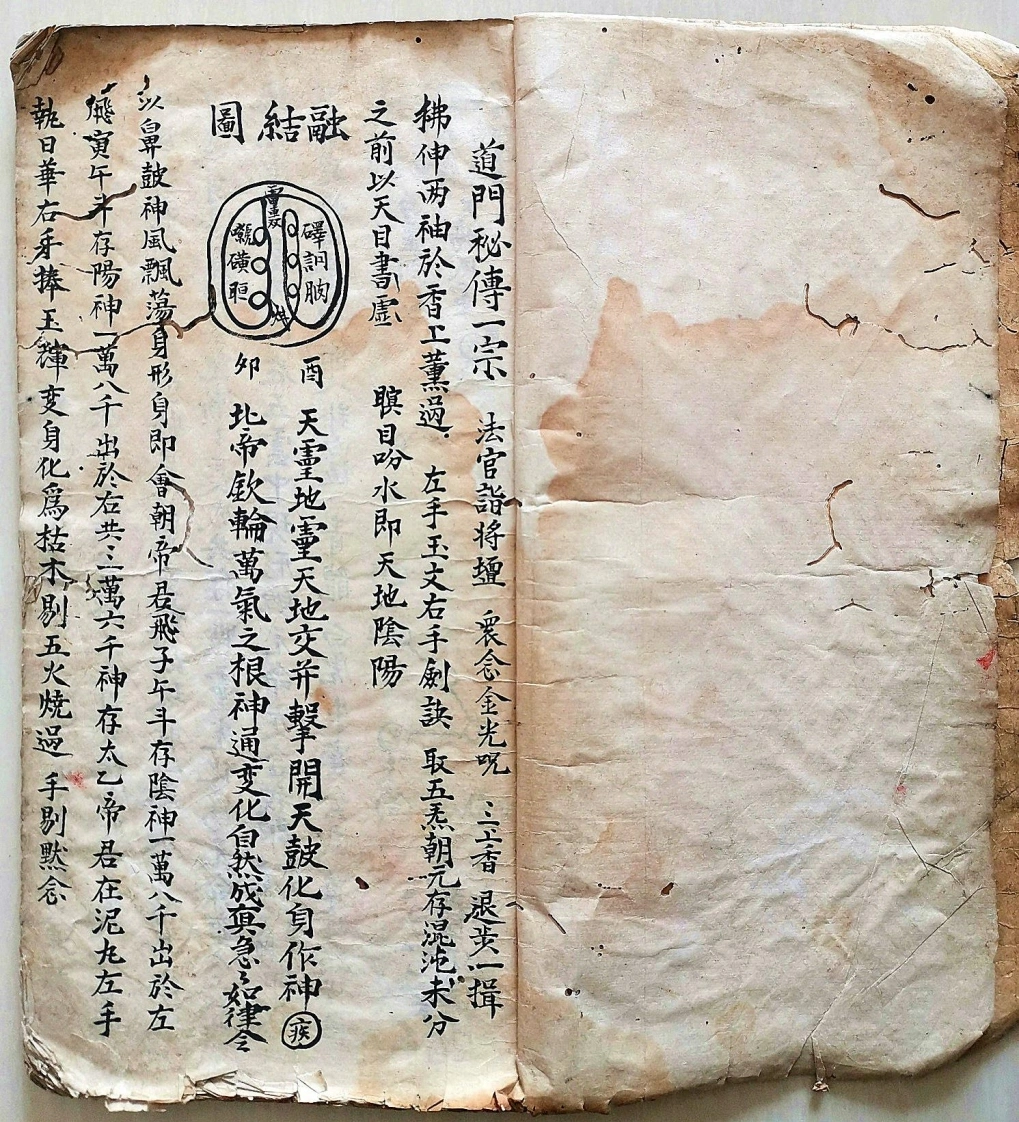 道門秘傳一宗 法官詣将壇 衆念金光呪 三上香 退步一揖
拂伸两袖於香上薰過 左手玉文右手劍訣 取五炁朝元存混沌未分
之前以天目書虛 瞑目吩水即天地陰陽
融結圖
酉 天靈地靈天地交并擊開天鼓化身作神 疾
卯 北帝欽輪萬氣之根神通变化自然成真急々如律令
以鼻鼓神風飄蕩身形身即會朝帝君飛子午斗存陰神一萬八千出於左
飛寅午斗存陽神一萬八千出於右共三萬六千神存太乙帝君在泥丸左手
執日華右手捧玉輝变身化爲枯木剔五火燒過 手剔默念